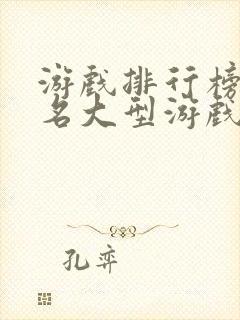 游戏排行榜
名大型游戏
孔弈